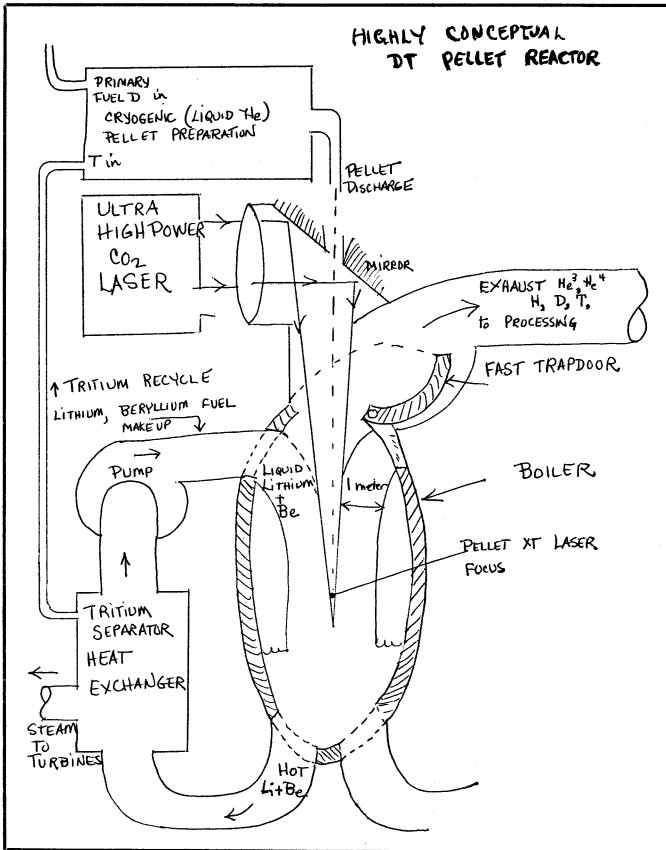 HIGHLY CONCEPTUAL
DT PELLET REACTOR
PRIMARY
FUEL D in
CRYOGENIC (LIQUID He)
PELLET PREPARATION
T in
PELLET
DISCHARGE
ULTRA
HIGH POWER
CO2
LASER
MIRROR
EXHAUST He3, He4
H, D, T,
to PROCESSING
FAST TRAPDOOR
↑ TRITIUM RECYCLE
LITHIUM, BERYLLIUM FUEL
MAKEUP
PUMP
LIQUID
LITHIUM
+
Be
1 meter
BOILER
PELLET XT LASER
FOCUS
TRITIUM
SEPARATOR
HEAT
EXCHANGER
STEAM
TO
TURBINES
HOT
Li+Be